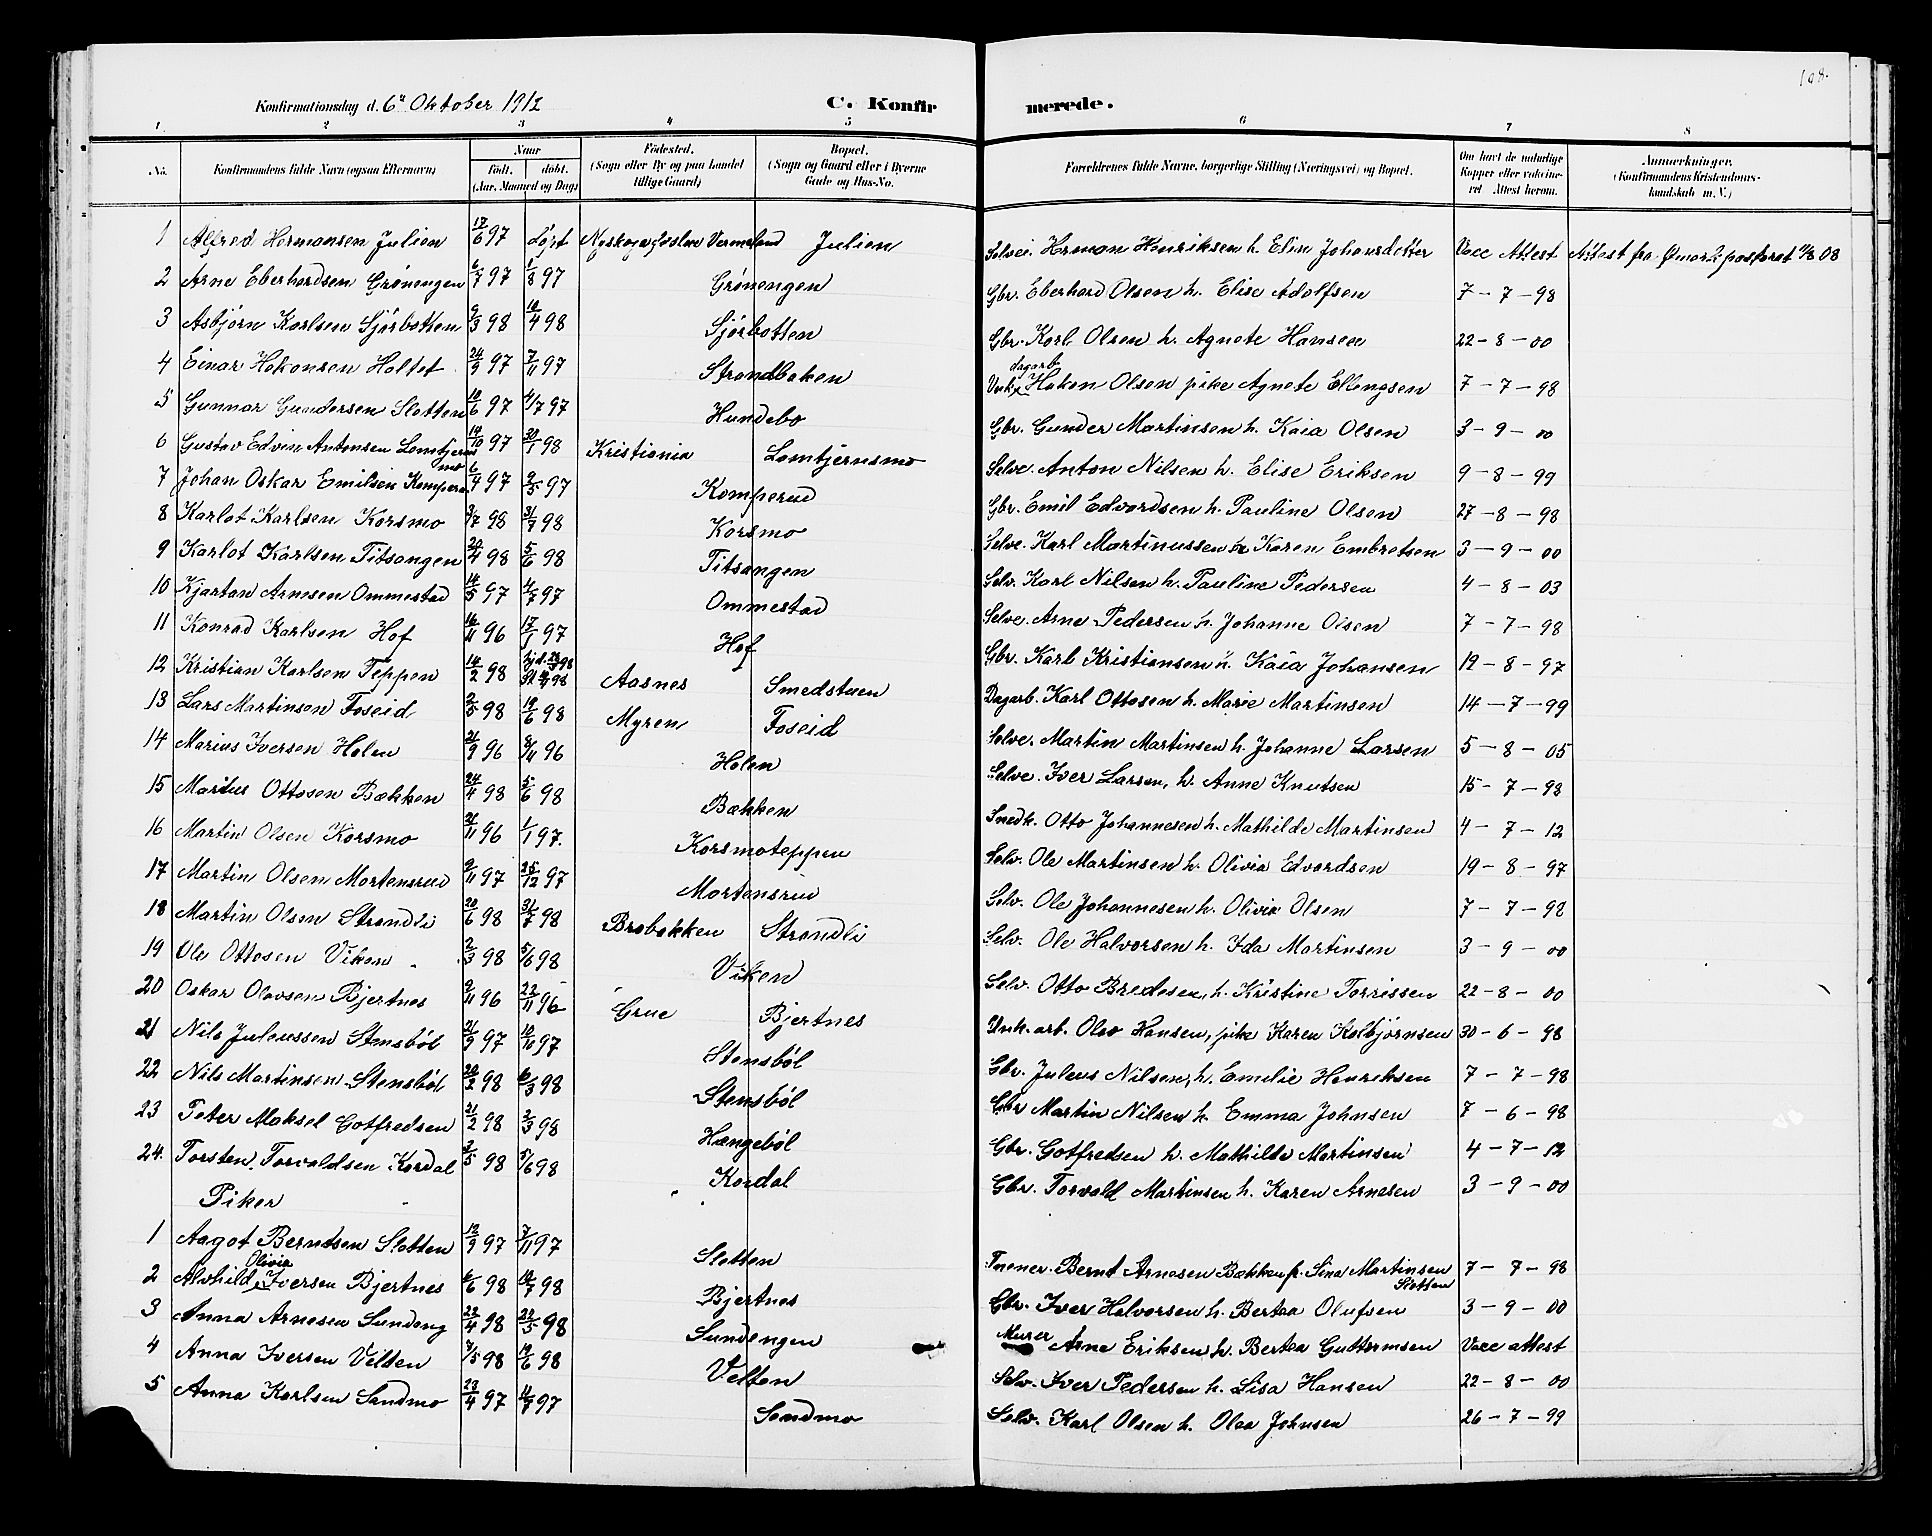 108.
Konfirmationsdag d. 6te Oktober 1912 C. Konfirmerede.
1 2 3 4 5 6 7 8
No. Konfirmandens fulde Navn (ogsaa Efternavn) Naar født. døbt. (Aar, Maaned og Dag) Fødested. (Sogn eller By og paa Landet tillige Gaard) Bopæl. (Sogn og Gaard eller i Byerne Gade og Hus-No. Forældrenes fulde Navne, borgerlige Stilling (Næringsvei) og Bopæl. Om havt de naturlige Kopper eller vaccineret. Attest herom. Anmærkninger. (Konfirmandens Kristendomskundskab m. V.)
1 Alfred Hermansen Julien 17/6 97 Julien Selvei. Herman Henriksen h. Elise Johansdotter Vacc Attest Attest fra
2 Arne Eberhardsen Grønengen 6/7 97 1/8 97 Grønengen Gbr. Eberhard Olsen h. Elise Adolfsen 7-7-98
3 Asbjørn Karlsen Sjørbotten 9/3 98 10/4 98 Sjørbotten Gbr. Karl Olsen h. Agnete Hansen 22-8-00
4 Einar Hakonsen Holtet 24/9 97 7/11 97 Strandbaken dagarb. Hakon Olsen pike Agnete Ellengsen 7-7-98
5 Gunnar Gundersen Slotten 10/6 97 4/7 97 Hundebo Gbr. Gunder Martinsen h. Kaia Olsen 3-9-00
6 Gustav Edvin Antonsen Lomtjernsmo 14/10 97 30/1 98 Kristiania Lomtjernsmo Selve. Anton Nilsen h. Elise Eriksen 9-8-99
7 Johan Oskar Emilsen Kamperud 6/4 97 2/5 97 Kamperud Gbr. Emil Edvardsen h. Pauline Olsen 27-8-98
8 Karlot Karlsen Korsmo 3/7 98 31/7 98 Korsmo Selve. Karl Martinussen h. Karen Embretsen 3-9-00
9 Karlot Karlsen Titsangen 20/4 98 5/6 98 Titsangen Selv. Karl Nilsen h. Pauline Pedersen 4-8-03
10 Kjartan Arnesen Ommestad 14/5 97 4/7 97 Ommestad Selve. Arne Pedersen h. Johanne Olsen 7-7-98
11 Konrad Karlsen Hof 16/11 96 17/1 97 Hof Gbr. Karl Kristiansen h. Kaia Johansen 19-8-97
12 Kristian Karlsen Teppen 14/2 98 Aasnes Smedstuen Dagarb. Karl Ottosen h. Marie Martinsen 14-7-99
13 Lars Martinsen Foseid 2/5 98 19/6 98 Myren Foseid Selve. Martin Martinsen h. Johanne Larsen 5-8-05
14 Marius Iversen Holen 21/9 96 8/11 96 Holen Selve. Iver Larsen, h. Anne Knutsen 15-7-98
15 Marius Ottosen Bækken 24/4 98 5/6 98 Bækken Snedk. Otto Johannesen h. Mathilde Martinsen 4-7-12
16 Martin Olsen Korsmo 21/11 96 1/1 97. Korsmoteppen Selv. Ole Martinsen h. Olivia Edvardsen 19-8-97
17 Martin Olsen Mortensrud 9/11 97 25/12 97 Mortensrud Selv. Ole Johannesen h. Olivia Olsen 7-7-98
18 Martin Olsen Strandli 20/6 98 31/7 98 Brobakken Strandli Selv. Ole Halvorsen h. Ida Martinsen 3-9-00
19 Ole Ottosen Viken 2/3 98 5/6 98 Viken Selv. Otto Bredesen, h. Kristine Torrissen 22-8-00
20 Oskar Olavsen Bjertnes 9/11 96 22/11 96 Grue Bjertnes arb. Olav Hansen, pike Karen Kolbjørnsen 30-6-98
21 Nils Juliussen Stensbøl 21/9 97 10/10 97 Stensbøl Gbr. Julius Nilsen, h. Emilie Henriksen 7-7-98
22 Nils Martinsen Stensbøl 20/2 98 6/3 98 Stensbøl Gbr Martin Nilsen h. Emma Johnsen 7-6-98
23 Peter Maksel Gotfredsen 21/2 98 2/3 98 Hængebøl Gbr. Gotfredsen h. Mathilde Martinsen 4-7-12
24. Torsten Torvaldsen Kordal 2/5 98 5/6 98 Kordal Gbr. Torvald Martinsen h. Karen Arnesen 3-9-00
Piker
1 Aagot Berntsen Slotten 12/9 97 7/11 97 Slotten Tuener. Bernt Arnesen Bækken p. Lina Martinsen Slotten 7-7-98
2 Alvhild Olivia Iversen Bjertnes 6/6 98 10/7 98 Bjertnes Gbr. Iver Halvorsen h. Bertea Olufsen 3-9-00
3 Anna Arnesen Sundeng 22/4 98 22/5 98 Sundengen Murer Arne Eriksen h. Bertea Guttormsen Vacc attest
4 Anna Iversen Velten 7/5 98 19/6 98 Velten Selv. Iver Pedersen h. Lisa Hansen 22-8-00
5 Anna Karlsen Sandmo 23/4 97 4/7 97 Sandmo Selv. Karl Olsen h. Olea Johnsen 26-7-99